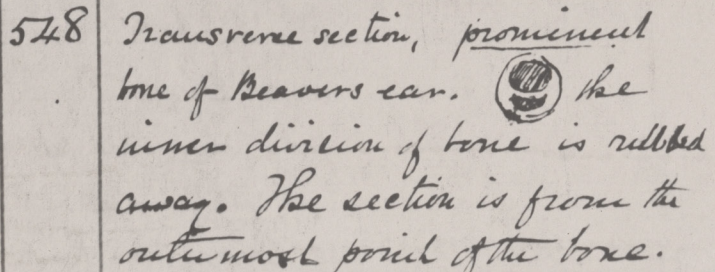 548 Transverse section, prominent
bone of Beavers ear. the
inner division of bone is rubbed
away. The section is from the
outermost point of the bone.